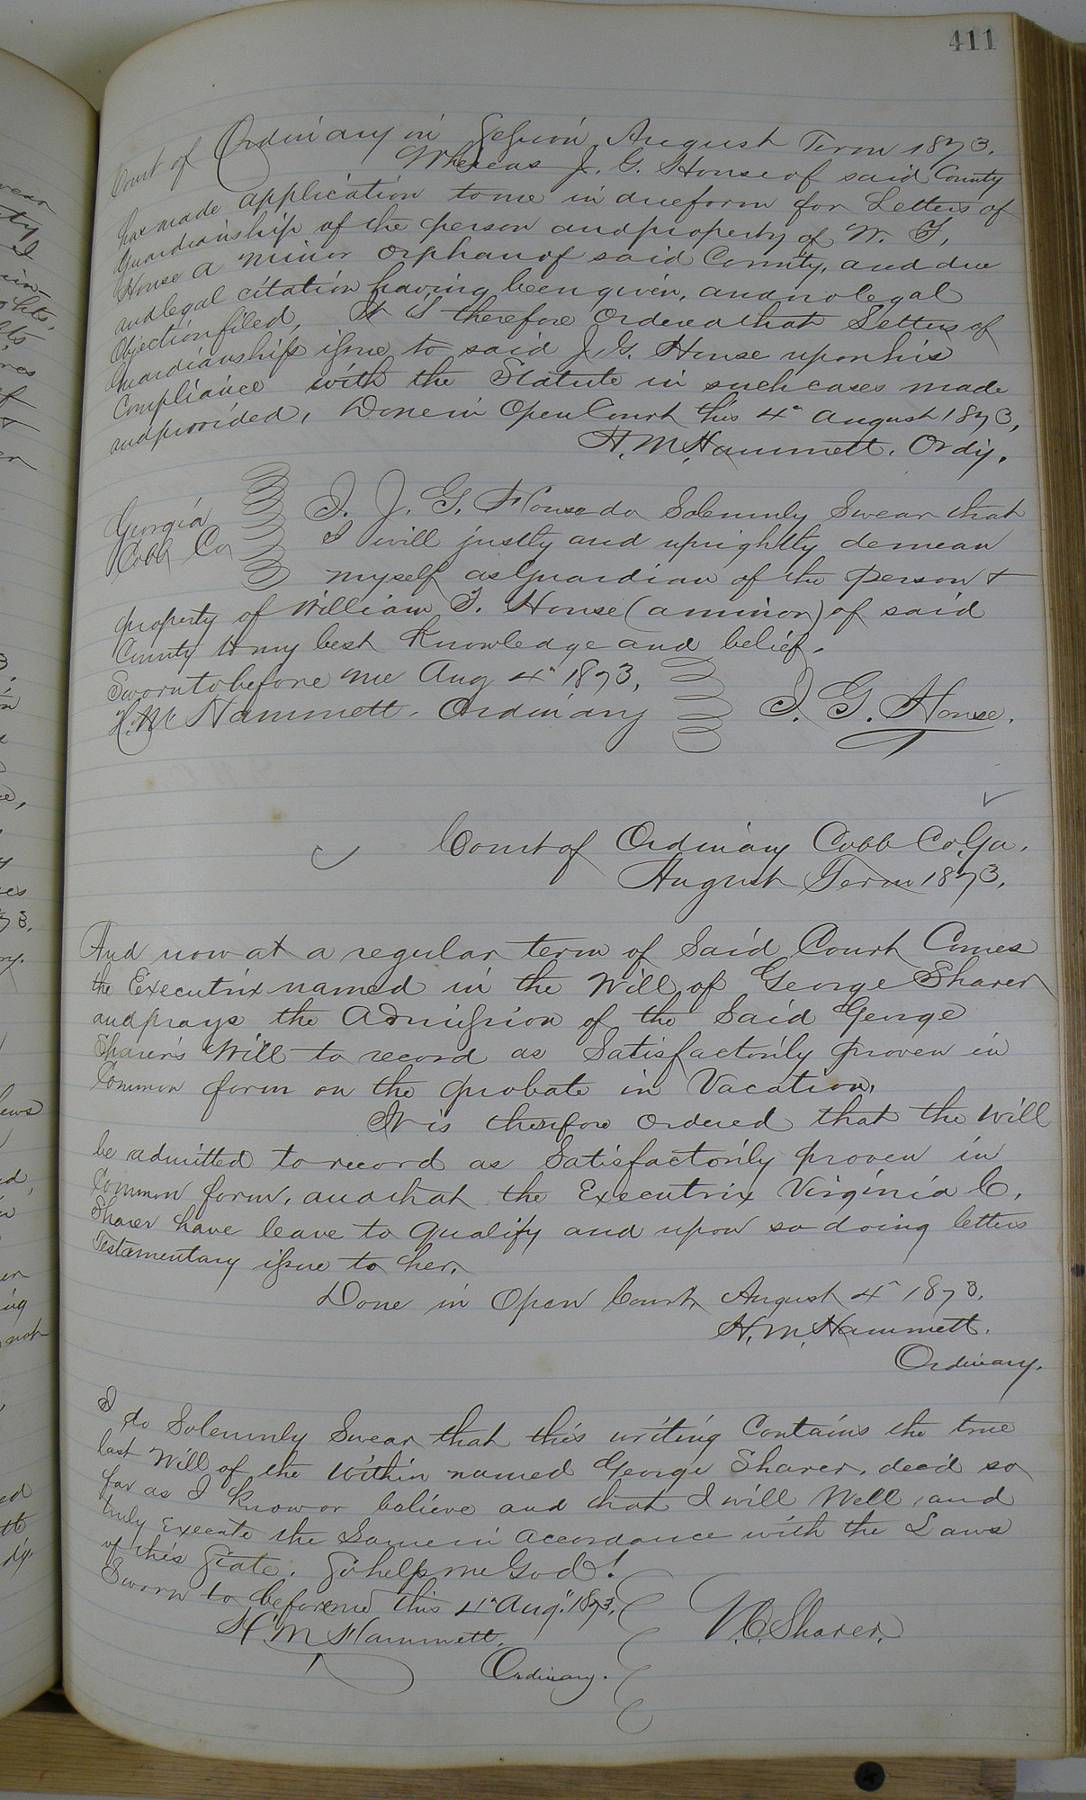 411
Court of Ordinary in Session August Term 1873.
Whereas J. G. House of said County
has made application to me in due form for Letters of
Guardianship of the person and property of W. T.
House a minor orphan of said County, and due
and legal citation having been given, and no legal
Objection filed, It is therefore Ordered that Letters of
Guardianship issue to said J. G. House upon his
Compliance with the Statute in such cases made
and provided. Done in Open Court this 4" August 1873,
H. M. Hammett. Ordy.
Georgia
Cobb Co
I. J. G. House do Solemnly Swear that
I will justly and uprightly demean
myself as Guardian of the person &
property of William T. House (a minor) of said
County to my best Knowledge and belief.
Sworn to before me Aug 4" 1873,
H. M. Hammett. Ordinary
J. G. House.
Court of Ordinary Cobb Co, Ga.
August Term 1873.
And now at a regular term of Said Court Comes
the Executrix named in the Will of George Sharer
and prays the Admission of the Said George
Sharer's Will to record as Satisfactorily proven in
Common form on the probate in Vacation.
It is therefore ordered that the Will
be admitted to record as Satisfactorily proven in
Common form, and that the Executrix Virginia C.
Sharer have leave to qualify and upon so doing letters
Testamentary issue to her.
Done in Open Court, August 4" 1873.
H. M. Hammett.
Ordinary.
I do Solemnly Swear that this writing Contains the true
last Will of the within named George Sharer, decd so
far as I know or believe and that I will Well and
truly Execute the Same in accordance with the Laws
of this State. So help me God!
Sworn to before me this 4" Aug. 1873.
H. M Hammett.
Ordinary.
V. C. Sharer.